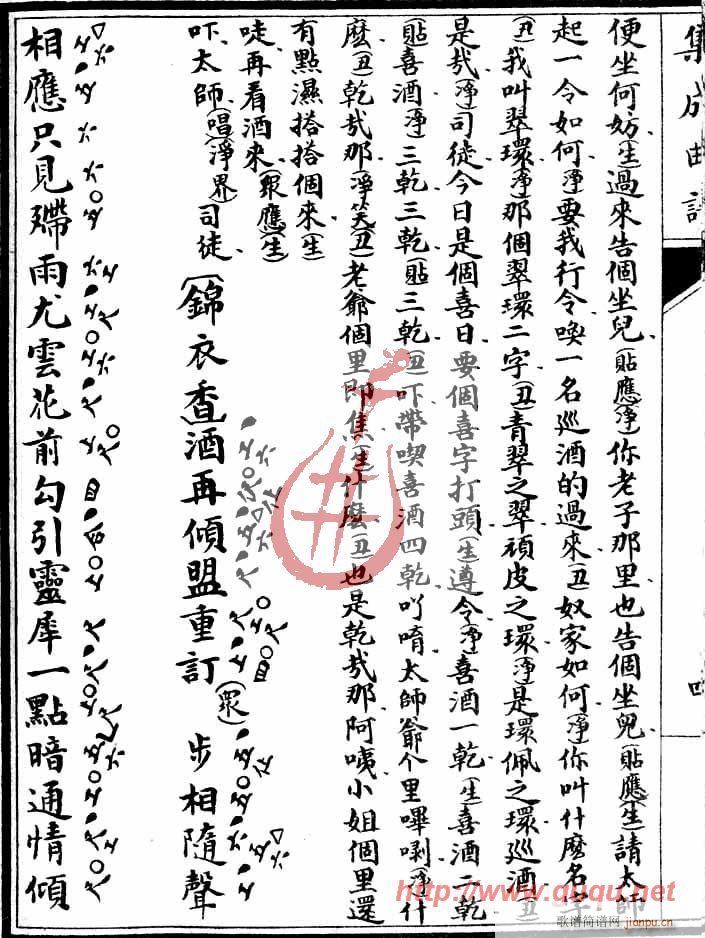 集成曲譜
便坐何妨(生)過來告個坐兒(貼應淨)你老子那里也告個坐兒(貼應生)請太師
起一令如何(淨)要我行令喚一名巡酒的過來(丑)奴家如何(淨)你叫什麽名字
(丑)我叫翠環(淨)那個翠環二字(丑)青翠之翠頑皮之環(淨)是環佩之環巡酒(丑)
是㢤(淨)司徒今日是個喜日要個喜字打頭(生)遵令(淨)喜酒一乾(生)喜酒二乾
(貼)喜酒(淨)三乾三乾(貼)三乾(丑)吓帶喫喜酒四乾吖唷太師爺个里嗶唎(淨)什
麽(丑)乾㢤那(淨笑丑)老爺個里即焦(生)什麽(丑)也是乾㢤那阿咦小姐個里還
有點濕搭搭個來(生)
唗再看酒來(衆應)(生)
吓太師(唱)(淨界)司徒
(錦衣香)酒再傾盟重訂(衆)步相隨聲
相應只見殢雨尤雲花前勾引靈犀一點暗通情傾
http://www.ququ.net
歌谱简谱网
jianpu.cn